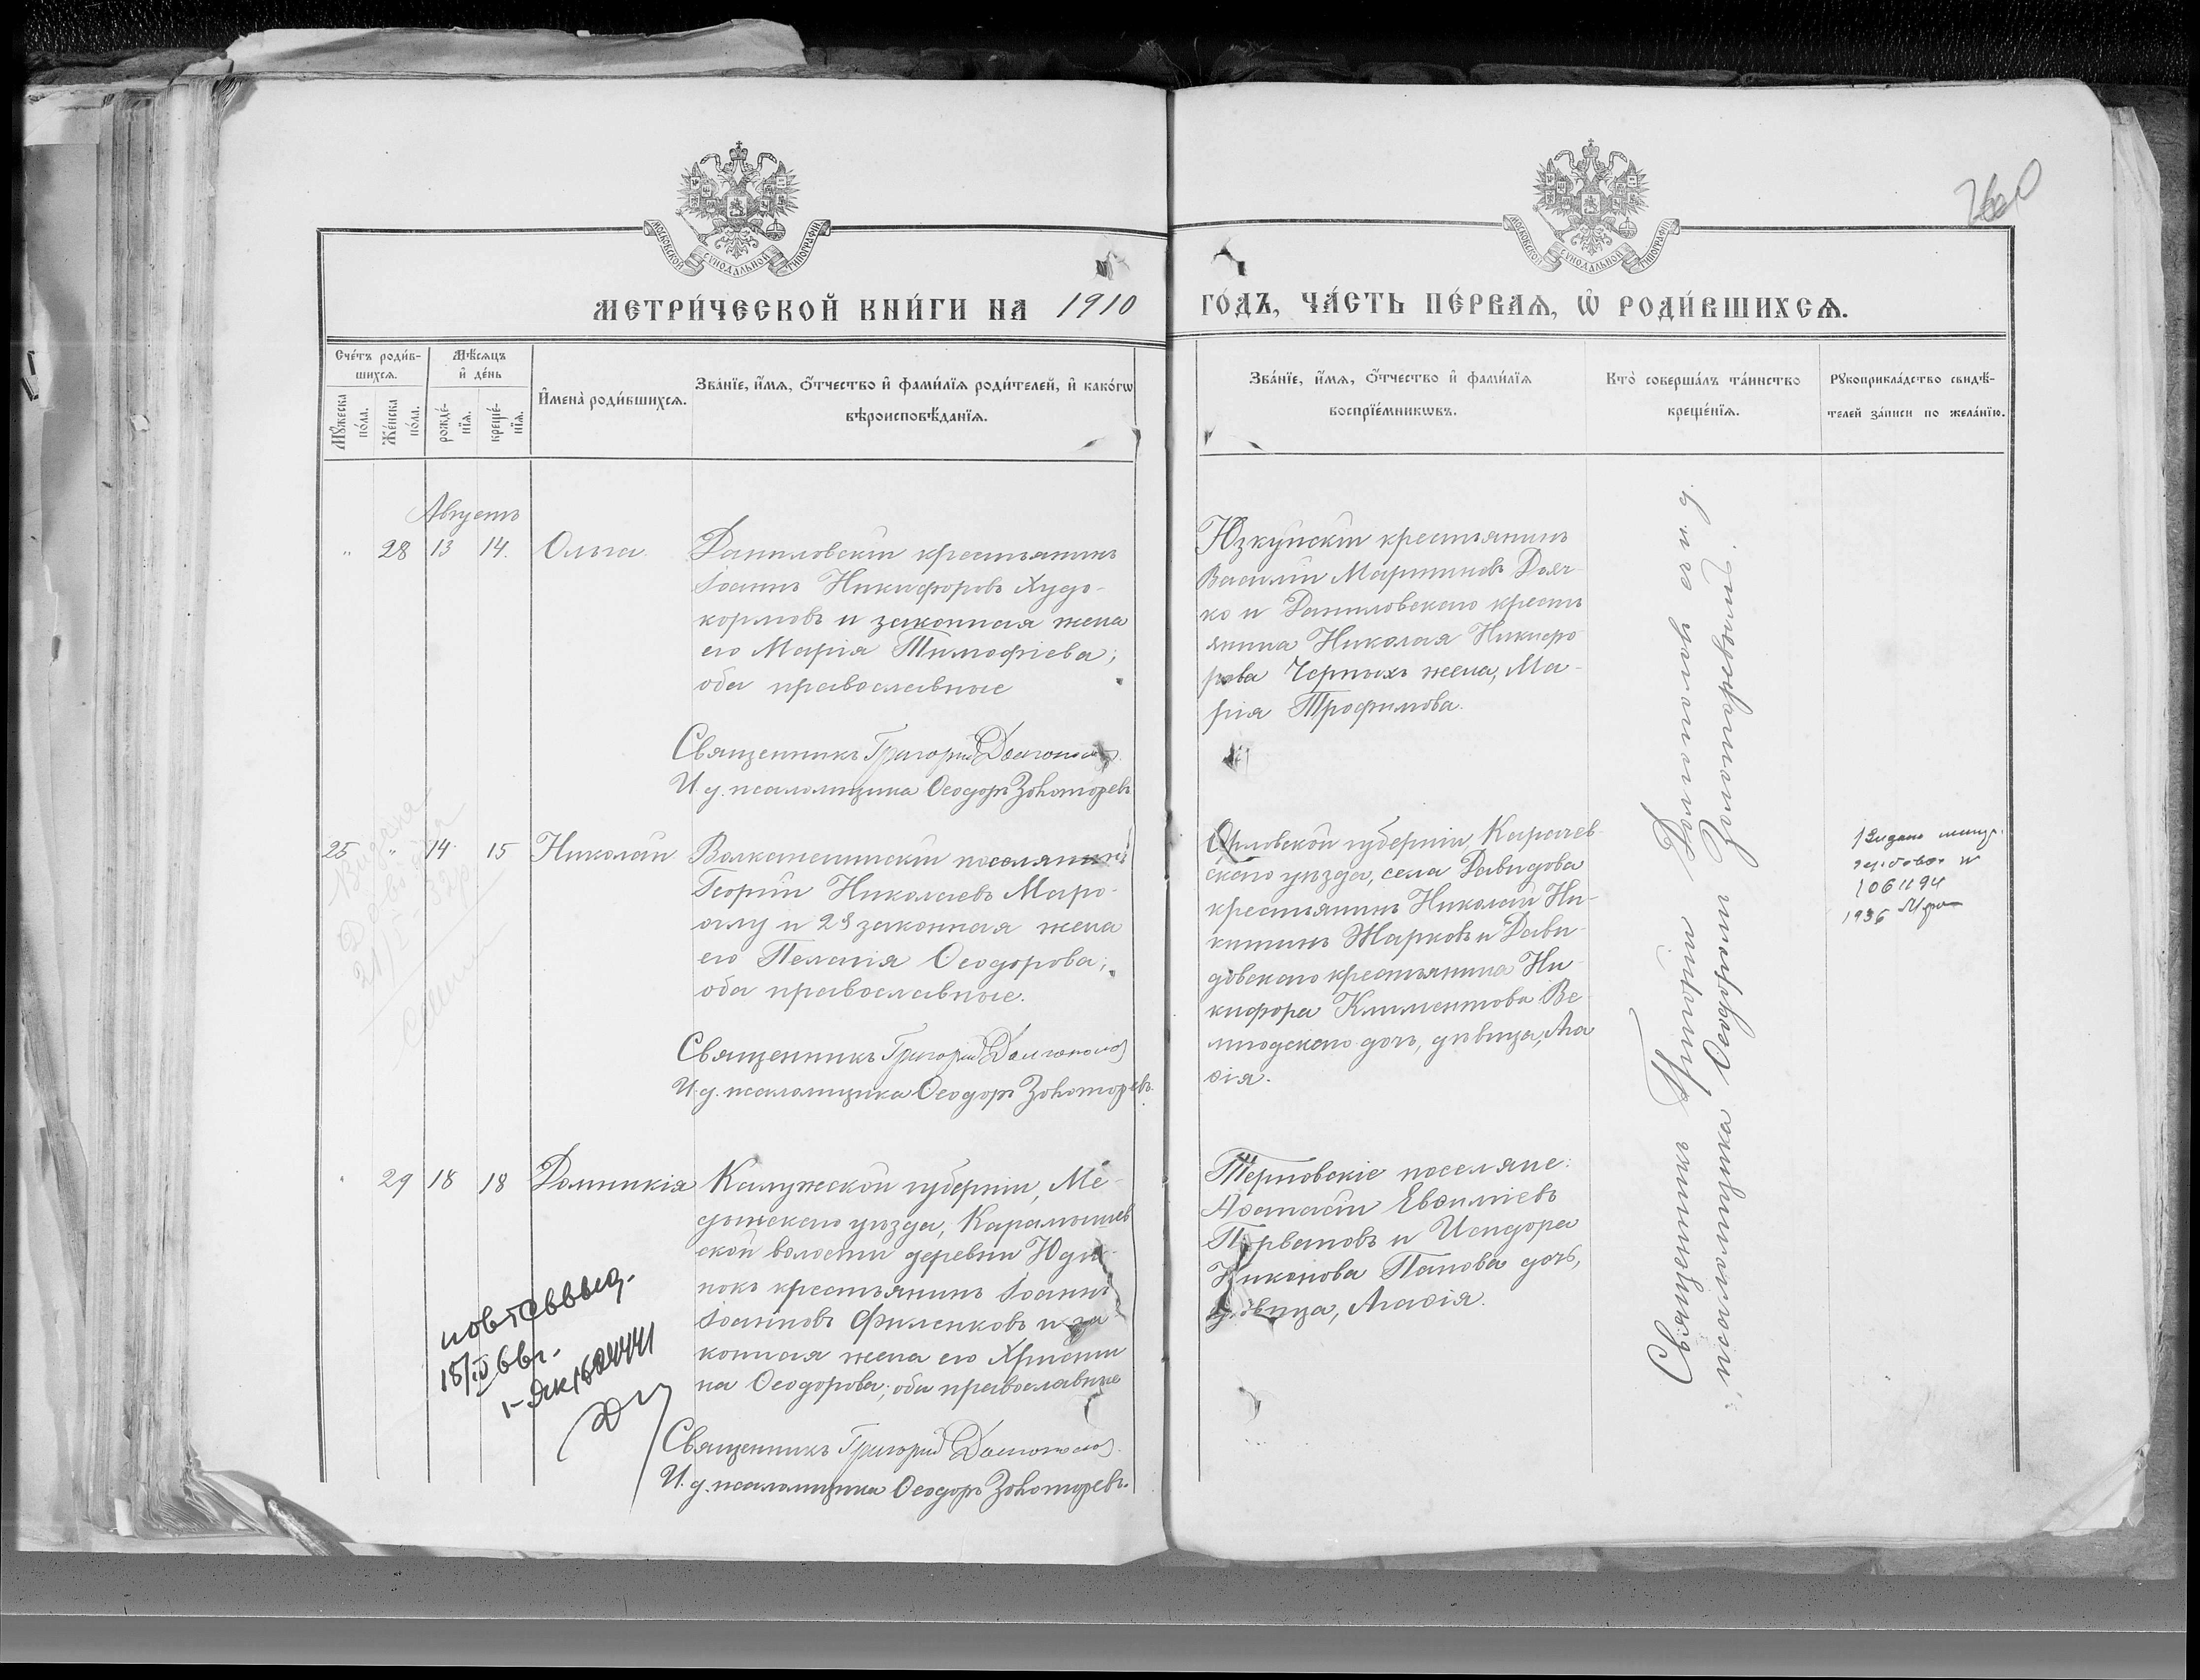 260
МОСКОВСКОЙ СѴНОДАЛЬНОЙ ТИПОГРАФІИ
МОСКОВСКОЙ СѴНОДАЛЬНОЙ ТИПОГРАФІИ
МЕТРИ́ЧЕСКОЙ КНИ́ГИ НА 1910
ГО́ДЪ, ЧА́СТЬ ПЕ́РВАЯ, Ѡ҆ РОДИ́ВШИХСѦ.
Сче́тъ роди́в-
шихсѧ.
Мѣ́сѧцъ
и҆ де́нь
Мꙋ́жеска
по́ла.
Же́нска
по́ла.
рожде́-
нїѧ.
креще́-
нїѧ.
И҆мена̀ роди́вшихсѧ.
Зва́нїе, и҆́мѧ, ѻ҆́тчество и҆ фами́лїѧ роди́телей, и҆ како́гѡ
вѣроисповѣ́данїѧ.
Зва́нїе, и҆́мѧ, ѻ҆́тчество и҆ фами́лїѧ
воспрїе́мникѡвъ.
Кто̀ соверша́лъ та́инство
креще́нїѧ.
Рꙋкоприкла́дство свидѣ́-
телей за́писи по жела́нїю.
Августъ
" 28 13 14. Ольга.
Даниловскій крестьянинъ
Іоаннъ Никифоровъ Худо-
кормовъ и законная жена
его Марія Тимофіева;
оба православные
Священникъ Григорій Долгополов
И. д. псаломщика Ѳеодоръ
Юзкуйскій крестьянинъ
Василій Мартиновъ Доля-
ко и Даниловскаго кресть
янина Николая Никифо
рова Черныхъ жена, Ма-
рія Трофимова.
25 " 14 15 Николай
Волканешинскій поселянинъ
Георгій Николаевъ Маро-
оглу и 2я законная жена
его Пелагія Ѳеодорова;
оба православные.
Священникъ Григорій Долгополов
И. д. псаломщика Ѳеодоръ
Орловской губерніи, Карачев-
скаго уѣзда, села Давидова
крестьянинъ Николай Ни-
китинъ Жарковъ и Дави-
довскаго крестьянина Ни-
кифора Климентова Ве-
лигодскаго дочь, дѣвица, Ага
ѳія.
1936
29 18 18 Домникія
Калужской губерніи, Ме-
дынскаго уѣзда, Карамышев
ской волости деревни Юди-
нокъ крестьянинъ Іоаннъ
Іоанновъ Филенковъ и за-
конная жена его Христи
на Ѳеодорова; оба православные
Священникъ Григорій Долгополов.
И. д. псаломщика Ѳеодоръ
Терновскіе поселяне:
Аѳанасій Евѳиміевъ
Первановъ и Исидора
Никонова Панова дочь,
дѣвица, Агаѳія.
Священникъ Григорій Долгополовъ
псаломщика Ѳеодоръ